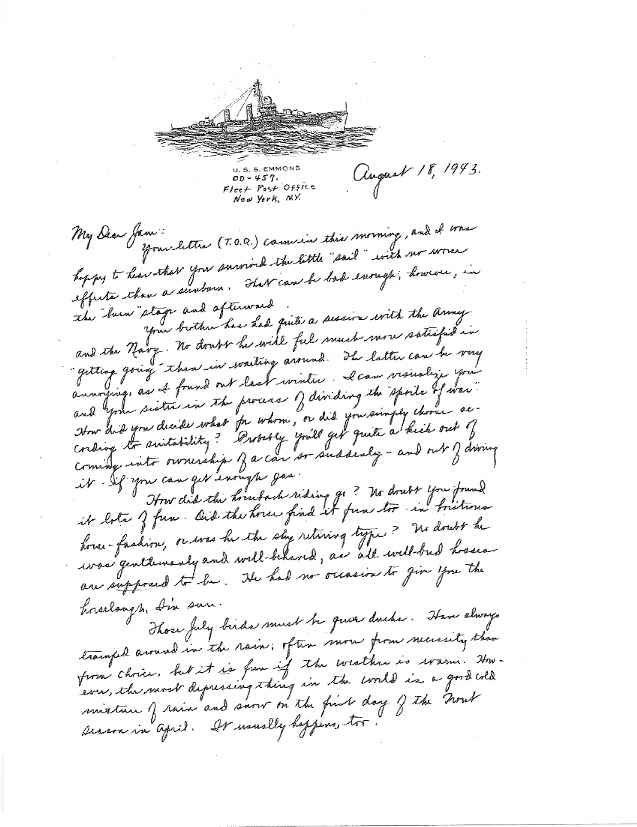 U. S. S. EMMONS
DD-457.
Fleet Post Office
New York, N.Y.
August 18, 1943.
My Dear Jane:
Your letter (T.O.R.) came in this morning, and I was
happy to hear that you survived the little "sail" with no worse
effects than a sunburn. That can be bad enough; however, in
the "burn" stage and afterward.
Your brother has had quite a session with the Army
and the Navy. No doubt he will feel much more satisfied in
"getting going" than in waiting around. The latter can be very
annoying, as I found out last winter. I can visualize you
and your sister in the process of dividing the "spoils of war"
How did you decide what for whom, or did you simply choose ac-
cording to suitability? Probably you'll get quite a kick out of
coming into ownership of a car so suddenly - and out of driving
it - if you can get enough gas.
How did the horseback riding go? No doubt you found
it lots of fun. Did the horse find it fun too - in
horse-fashion, or was he the shy retiring type? No doubt he
was gentlemanly and well-behaved, as all well-bred horses
are supposed to be. He had no occasion to give you the
horselaugh, I'm sure.
Those July birds must be queer ducks. Have always
tramped around in the rain; often more from necessity than
from choice, but it is fun if the weather is warm. How-
ever, the most depressing thing in the world is a good cold
mixture of rain and snow on the first day of the Trout
season in April. It usually happens, too.